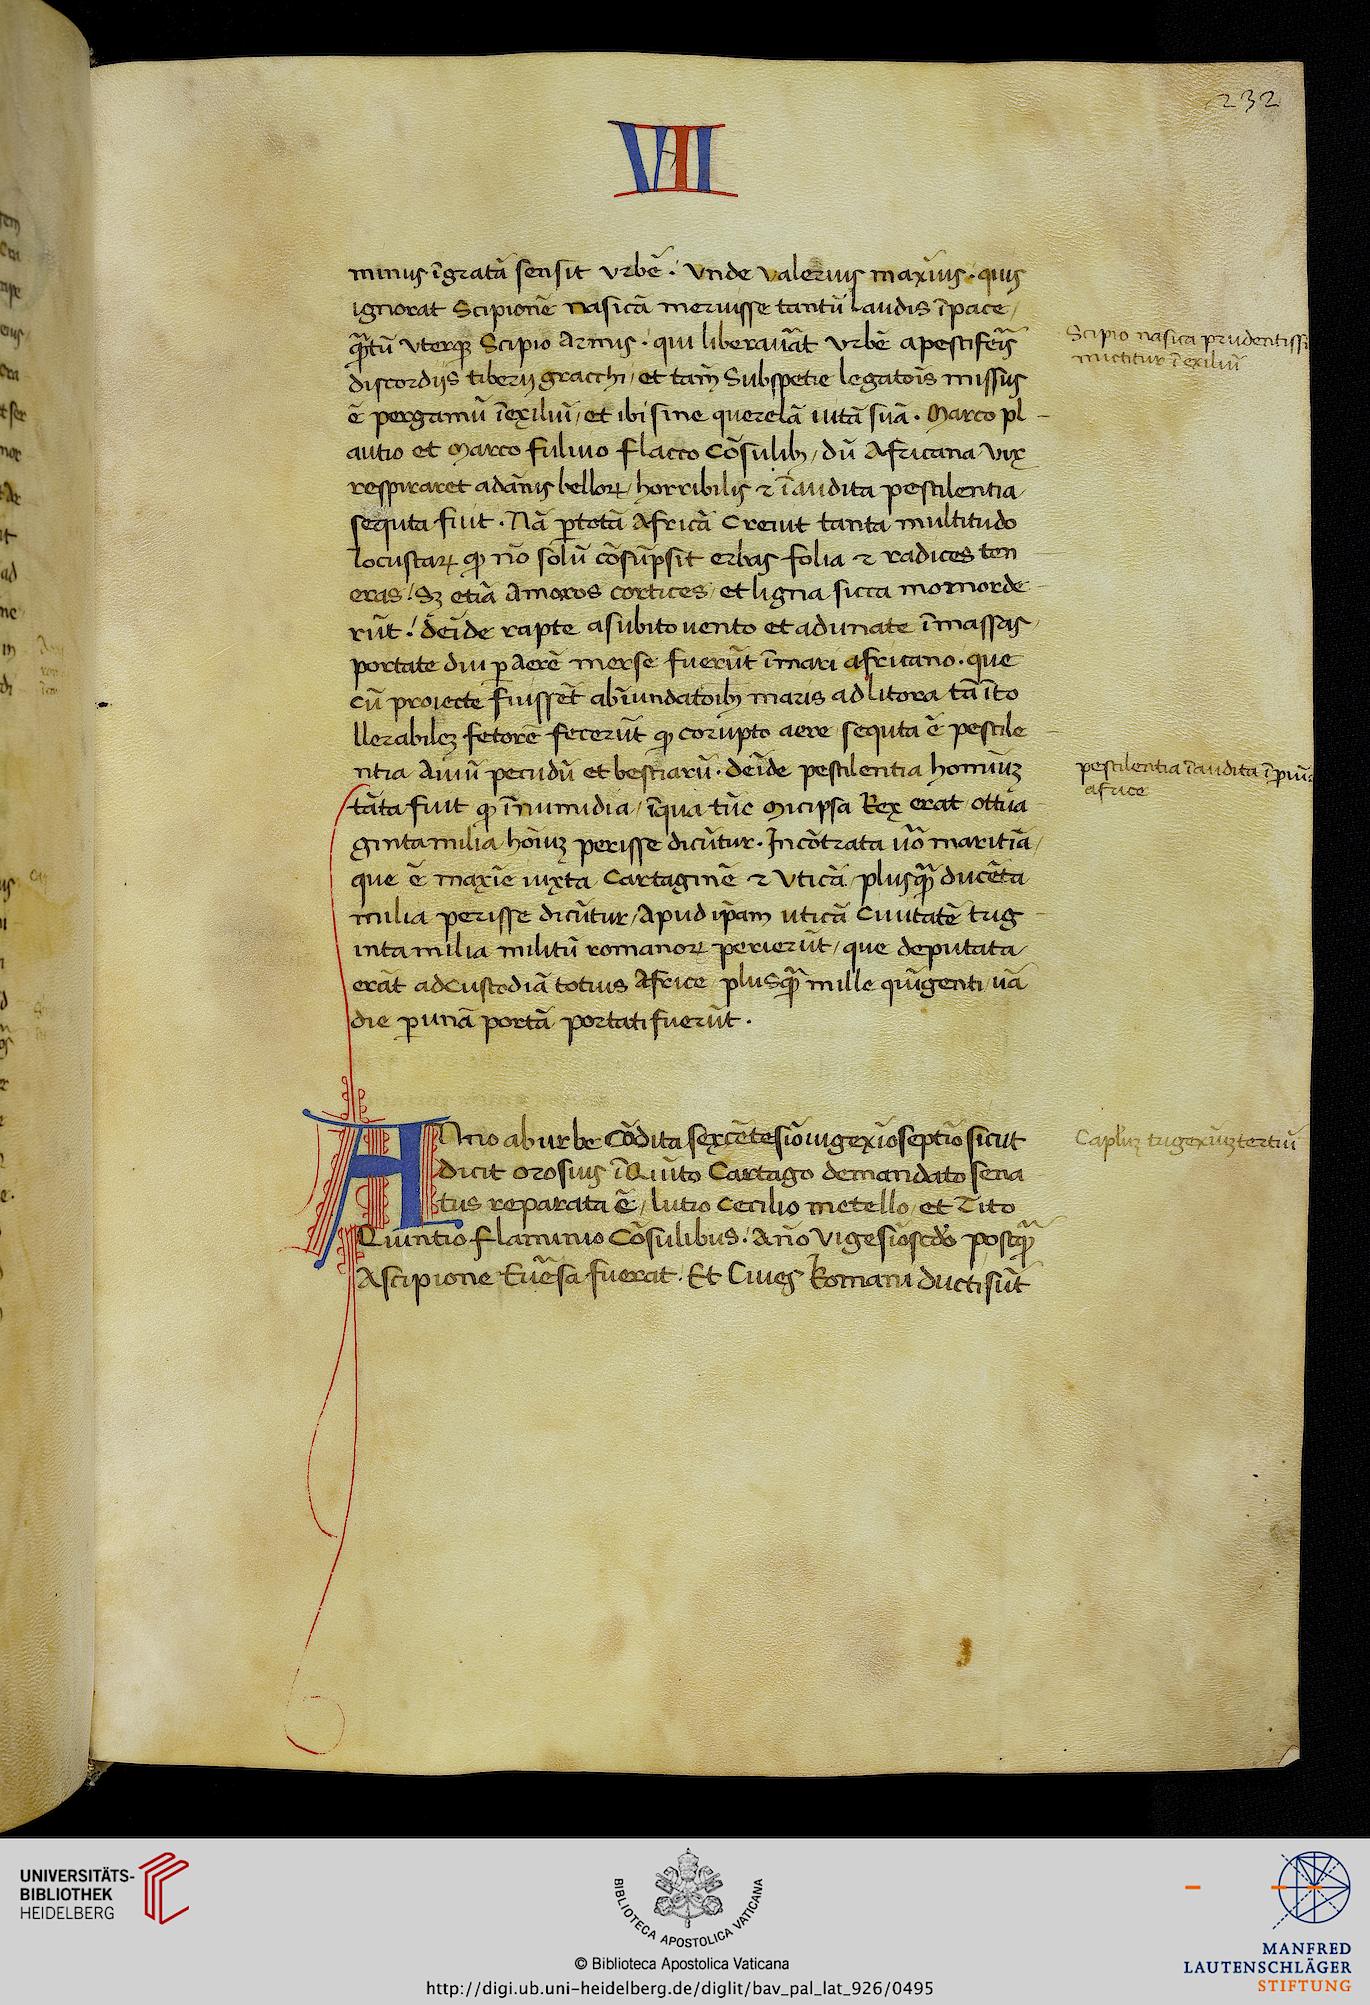 232
VII
minus īgratā sensit vrbē. Vnde valerius maxīus. quis
ignorat Scipionē nasicā meruisse tantū laudis ī pace
q̄tū vterq; Scipio Armis. qui liberauāt vrbē a pestifeīs
discordijs tiberij gracchi, et tam̄ Subspetie legatois missus
ē pergamū ī exiliū, et ibi sine querelā uitā suā. Marco pl
autio et Marco fuluio flacco Cōsulib; dū Africana vix
respiraret adānis bellorꝝ, horribilis ⁊ īaudita pestilentia
sequta fuit. Nā ꝑ totā Africā Creuit tanta multitudo
locustarꝝ ꝙ nō solū cōsūpsit erbas folia ⁊ radices ten
eras! Sꝫ etiā Amoros cortices, et ligna sicca momorde
rūt! deīde rapte a subito uento et adunate ī massas
portate diu ꝑ Aerē merse fuerūt ī mari africano. que
cū proiecte fuissēt ab īundatoibꝫ maris ad litora tā īto
llerabilēꝫ fetorē fecerūt ꝙ corūpto aere sequta ē pestile
ntia Auiū pecudū et bestiarū. deīde pestilentia homiūꝫ
tāta fuit ꝙ ī numidia, īqua tūc Micipsa Rex erat, ottua
ginta milia hoīuꝫ perisse dicūtur. In cōtrata uō maritiā,
que ē maxīe iuxta Cartaginē ⁊ Vticā plusq̄ ducēta
milia perisse dicūtur, Apud ip̄am uticā Ciuitatē trig
inta milia militū romanorꝝ perierūt, que deputata
erāt ad custodiā totius Africe plusq̄ mille quīgenti uā
die ꝑ unā portā portati fuerūt.
Scipio nasica prudentissi
mictitur ī exiliū
pestilentia īaudita ī
africe
ANno ab urbe Cōdita sexcētesiō uigexīo septīo sicut
dicit orosius ī Quīto Cartago demandato sena
tus reparata ē, lutio Cecilio metello, et Tito
Quintio flaminio Cōsulibus. Año Vigesiōscdo postq̄
A scipione Euēsa fuerat. Et Ciues Romani ducti sūt
Capl'uꝫ trigexiūꝫ tertiū
UNIVERSITÄTS-
BIBLIOTHEK
HEIDELBERG
BIBLIOTECA APOSTOLICA VATICANA
© Biblioteca Apostolica Vaticana
http://digi.ub.uni-heidelberg.de/diglit/bav_pal_lat_926/0495
MANFRED
LAUTENSCHLÄGER
STIFTUNG